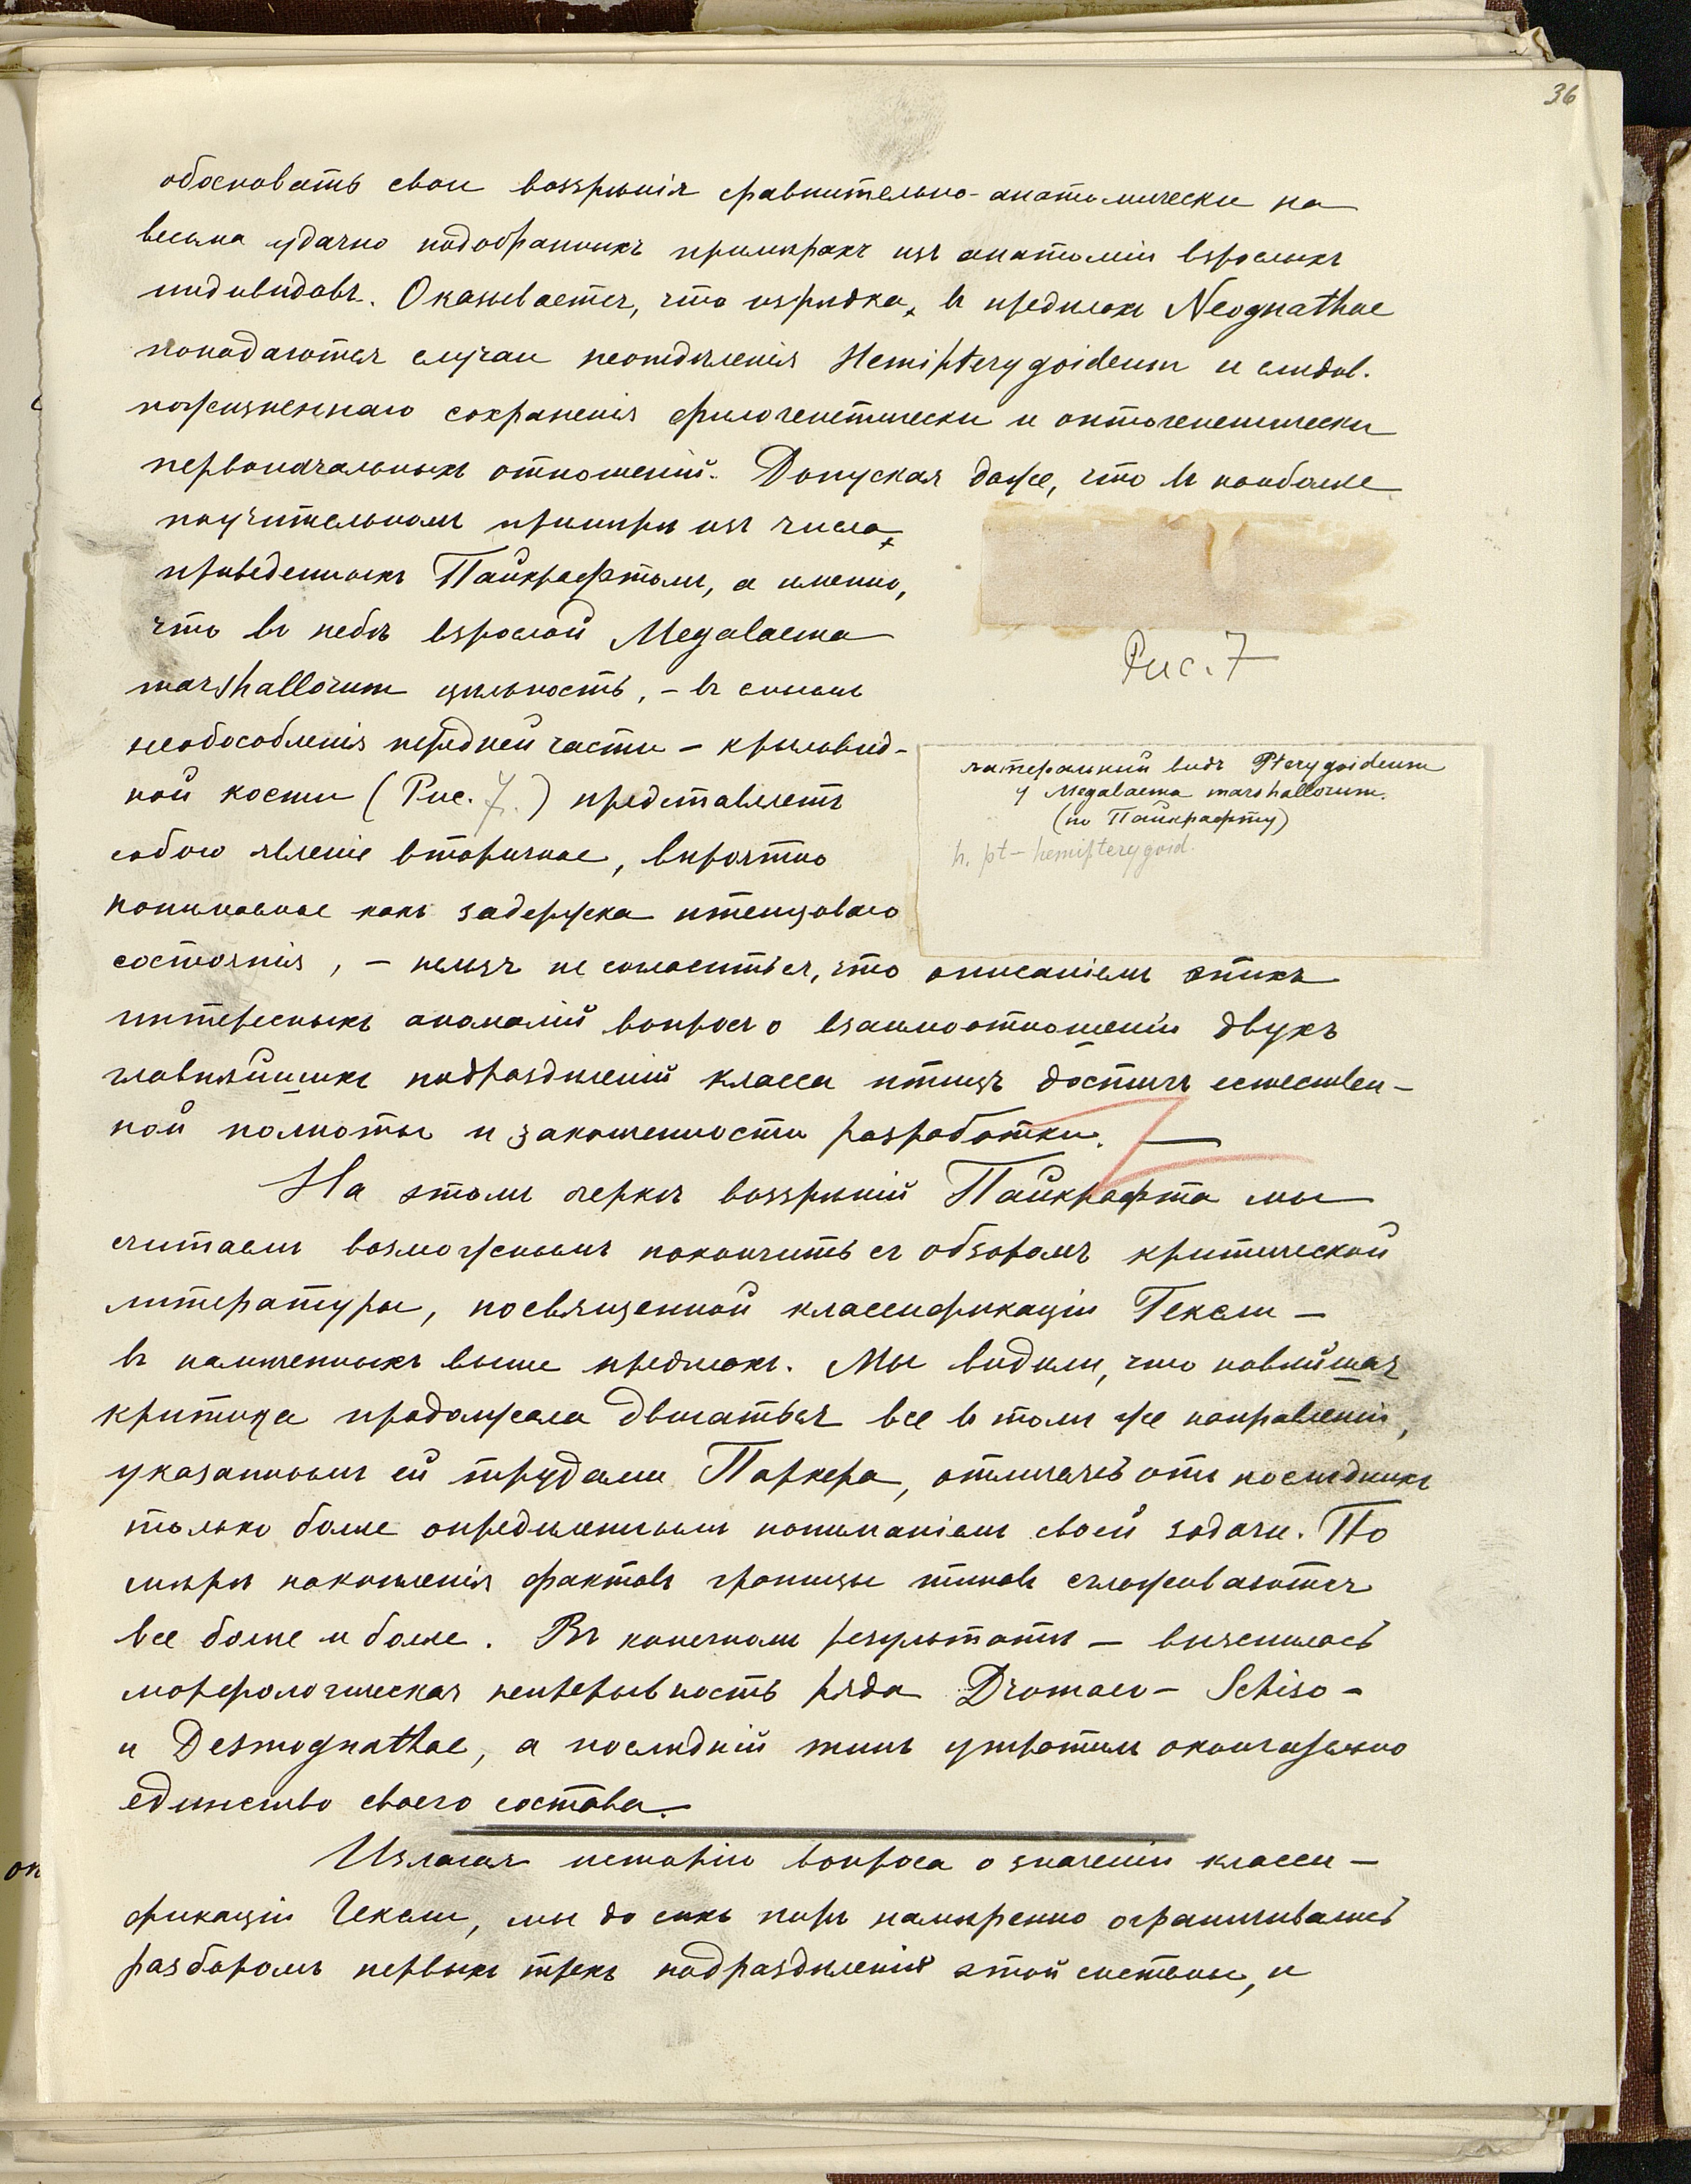 36
обосновать свои воззрѣнія сравнительно-анатомически на
весьма удачно подобранныхъ примѣрахъ изъ анатоміи взрослыхъ
индивидовъ. Оказывается, что изрѣдка, въ предѣлахъ Neognathae
попадаются случаи неотдѣленія Hemipterygoideum и слѣдов.
пожизненнаго сохраненія филогенетически и онтогенетически
первоначальныхъ отношеній. Допуская даже, что въ наиболѣе
поучительномъ примѣрѣ изъ числа,
приведенныхъ Пайкрафтомъ, а именно,
что въ небѣ взрослой Megalaema
marshallorum цѣльность, – въ смыслѣ
необособленія передней части – крыловид-
ной кости (Рис. 7.) представляетъ
собою явленіе вторичное, вѣроятно
понимаемое какъ задержка птенцоваго
состоянія, – нельзя не согласиться, что описаніемъ этихъ
интересныхъ аномалій вопросъ о взаимоотношеніи двухъ
главнѣйшихъ подраздѣленій класса птицъ достигъ естествен-
ной полноты и законченности разработки. —
Рис. 7
латеральный видъ Pterygoideum
у Megalaema marshallorum.
(по Пайкрафту)
h. pt – hemipterygoid.
На этомъ очеркѣ воззрѣній Пайкрафта мы
считаемъ возможнымъ покончить съ обзоромъ критической
литературы, посвященной классификаціи Гексли –
въ намѣченныхъ выше предѣлахъ. Мы видѣли, что новѣйшая
критика продолжала двигаться все въ томъ же направленіи,
указанномъ ей трудами Паркера, отличаясь отъ послѣднихъ
только болѣе опредѣленнымъ пониманіемъ своей задачи. По
мѣрѣ накопленія фактовъ границы типовъ сглаживаются
все болѣе и болѣе. Въ конечномъ результатѣ – выяснилась
морфологическая непрерывность ряда Dromaeo- Schizo-
и Desmognathae, а послѣдній типъ утратилъ окончательно
единство своего состава.
Излагая исторію вопроса о значеніи класси-
фикаціи Гексли, мы до сихъ поръ намѣренно ограничивались
разборомъ первыхъ трехъ подраздѣленій этой системы, и